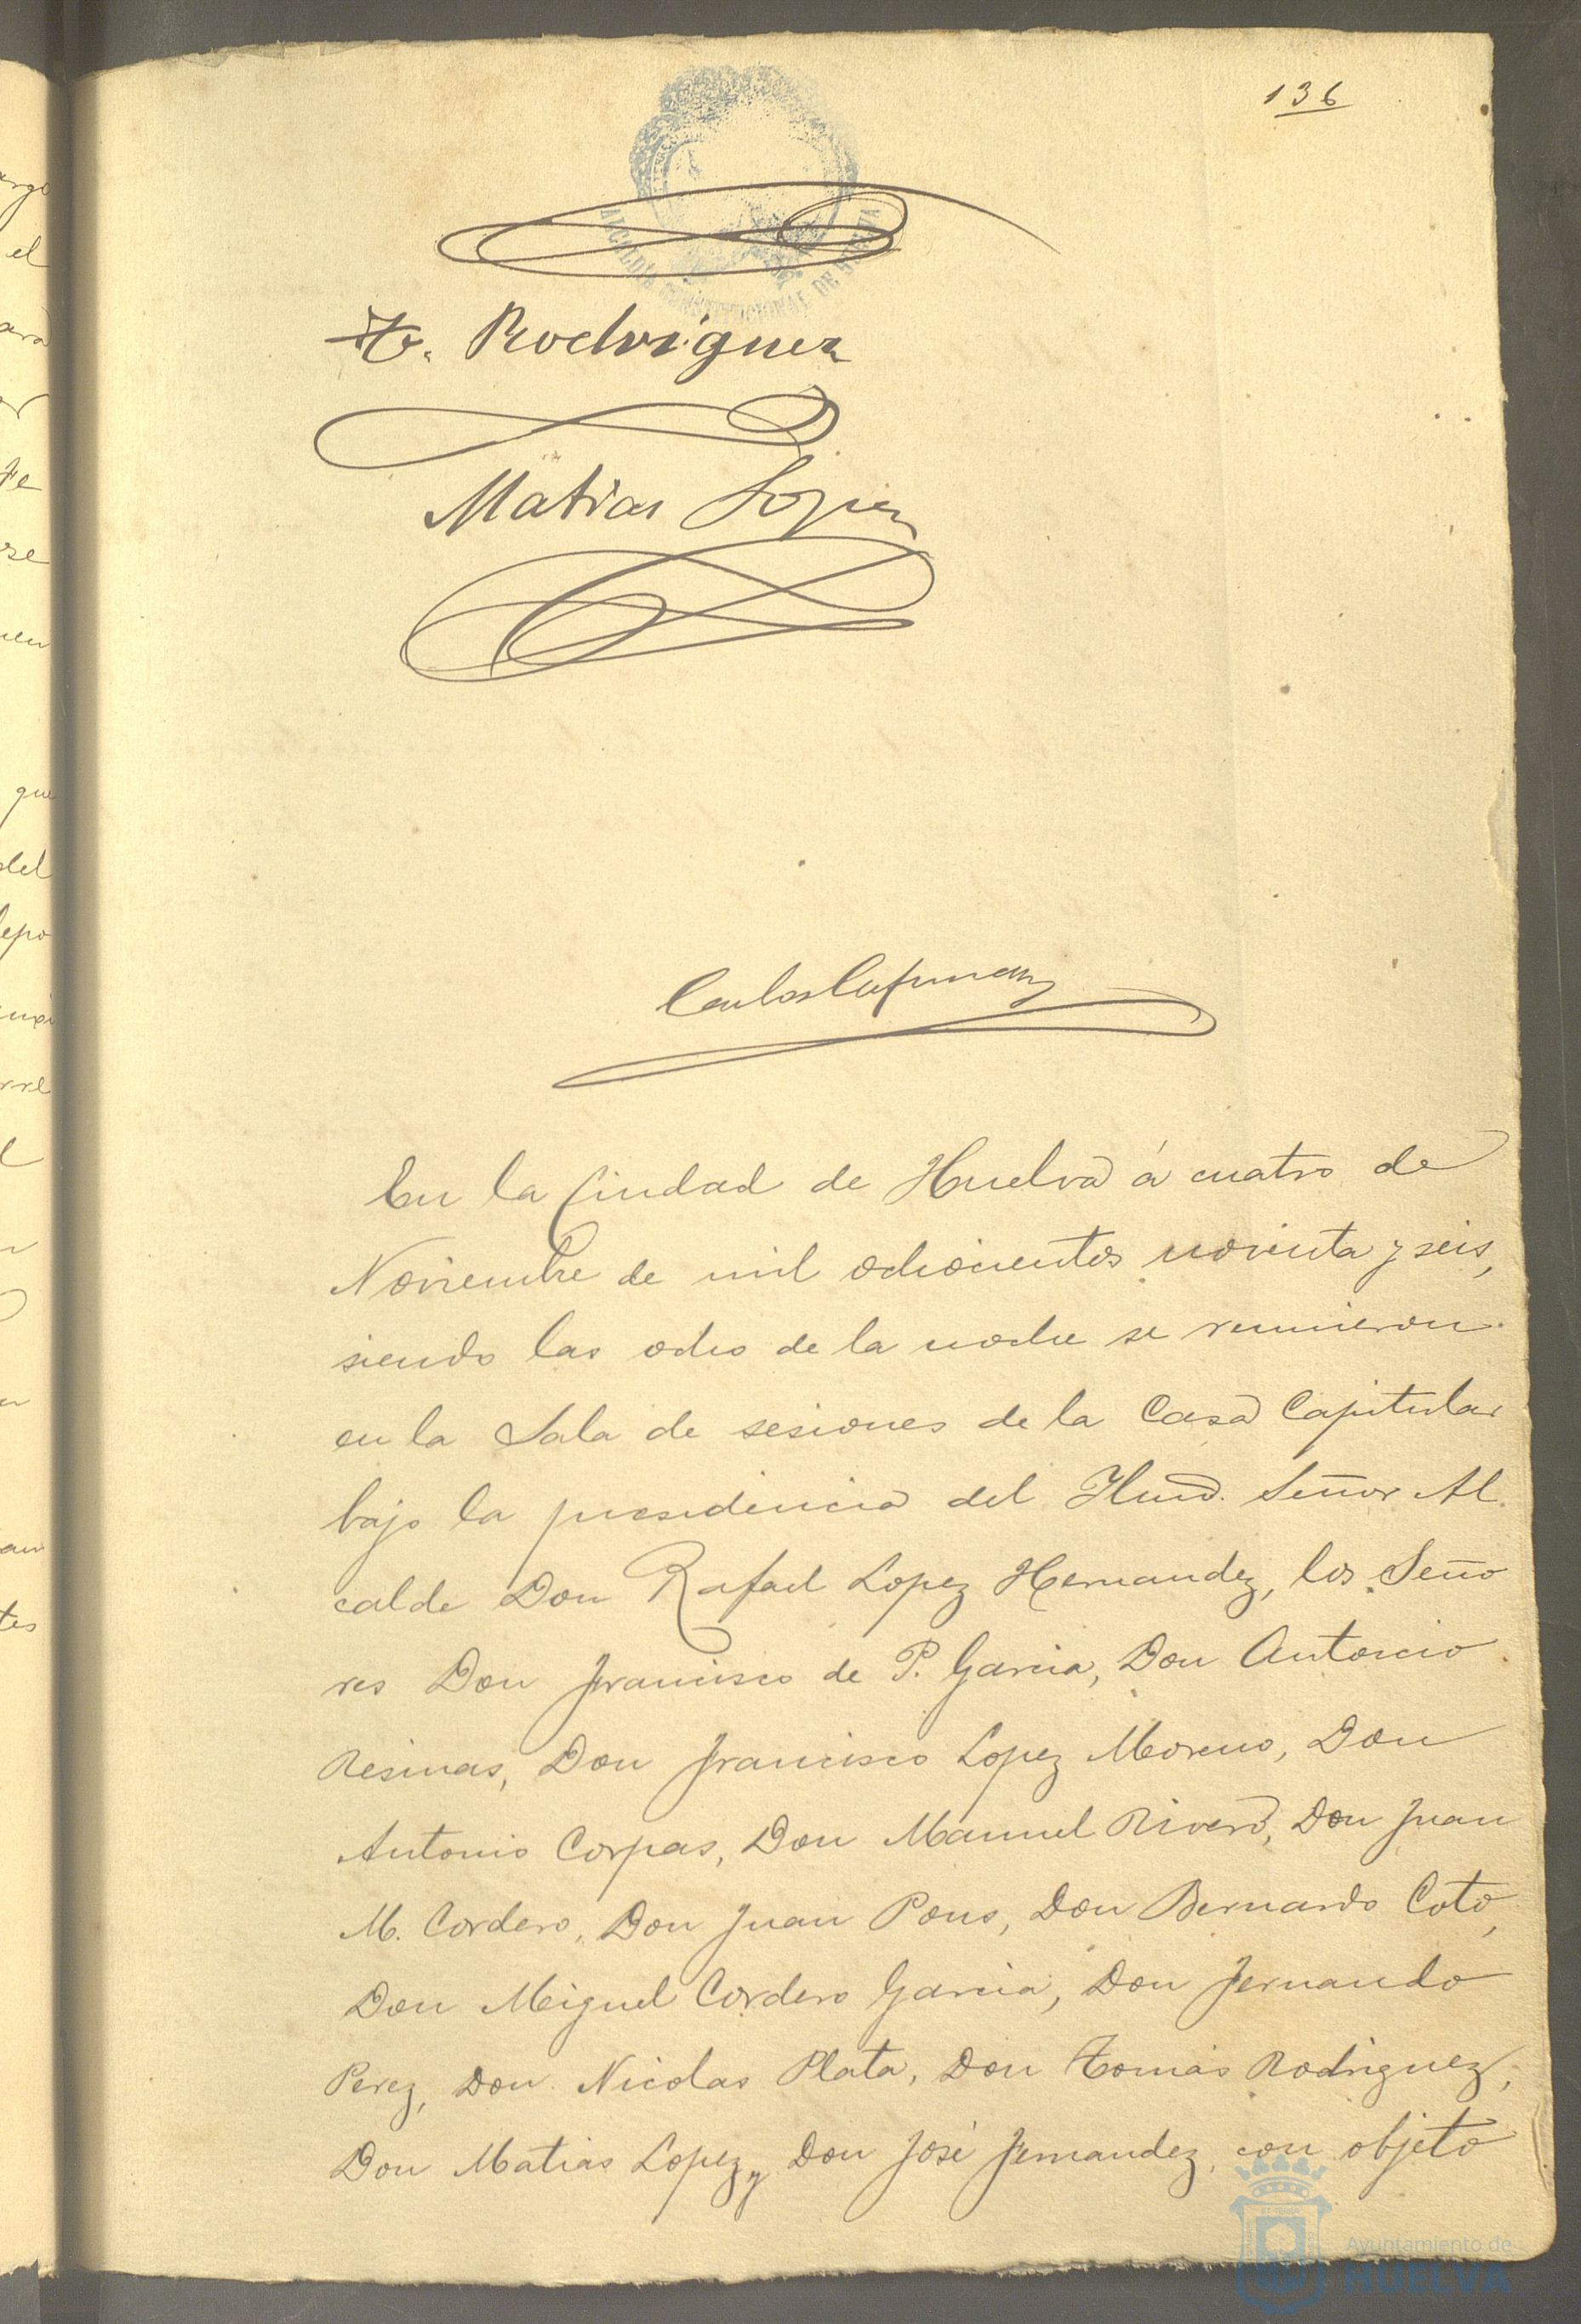 136
ALCALDIA CONSTITUCIONAL DE HUELVA
To. Rodriguez
Matias Lopez
Carlos
En la Ciudad de Huelva á cuatro de
Noviembre de mil ochocientos noventa y seis,
siendo las ocho de la noche se reunieron
en la Sala de sesiones de la Casa Capitular
bajo la presidencia del Ilmo. Señor Al
calde Don Rafael Lopez Hernandez, los Seño
res Don Francisco de P. Garcia, Don Antonio
Resinas, Don Francisco Lopez Moreno, Don
Antonio Corpas, Don Manuel Rivero, Don Juan
M. Cordero, Don Juan Pons, Don Bernardo Coto,
Don Miguel Cordero Garcia, Don Fernando
Perez, Don Nicolas Plata, Don Tomás Rodriguez,
Don Matias Lopez y Don José Fernandez, con objeto
Ayuntamiento de
HUELVA